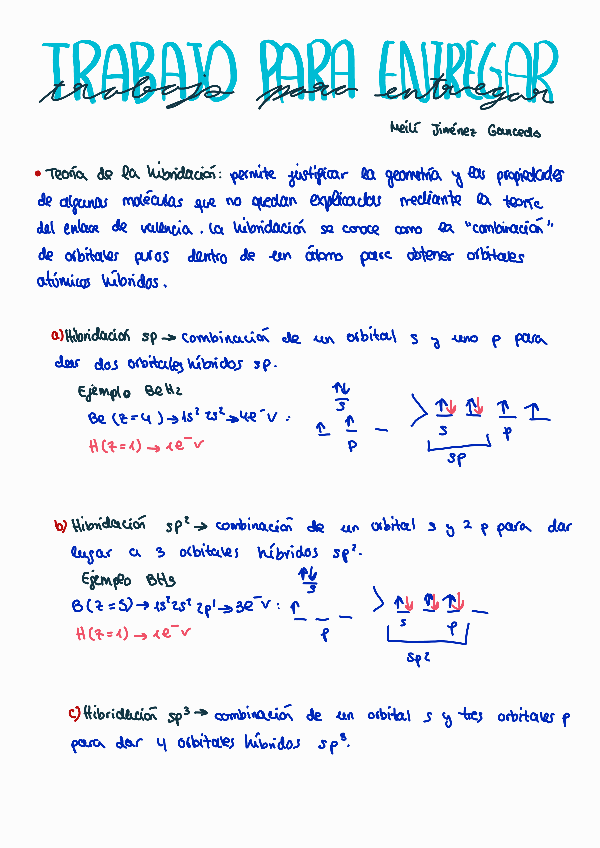 TRABAJO PARA ENTREGAR
trabajo para entregar
Meilí Jiménez Gancedo
• Teoría de la hibridación: permite justificar la geometría y las propiedades
de algunas moléculas que no quedan explicadas mediante la teoría
del enlace de valencia. La hibridación se conoce como la "combinación"
de orbitales puros dentro de un átomo para obtener orbitales
atómicos híbridos.
a) Hibridación sp → combinación de un orbital s y uno p para
dar dos orbitales híbridos sp.
Ejemplo BeH2
Be (Z=4) → 1s² 2s² → 4e⁻ V :
H (Z=1) → 1e⁻ V
s
p
s
p
sp
b) Hibridación sp² → combinación de un orbital s y 2 p para dar
lugar a 3 orbitales híbridos sp².
Ejemplo BH3
B (Z=5) → 1s² 2s² 2p¹ → 3e⁻ V :
H (Z=1) → 1e⁻ V
s
p
s
p
sp2
c) Hibridación sp³ → combinación de un orbital s y tres orbitales p
para dar 4 orbitales híbridos sp³.